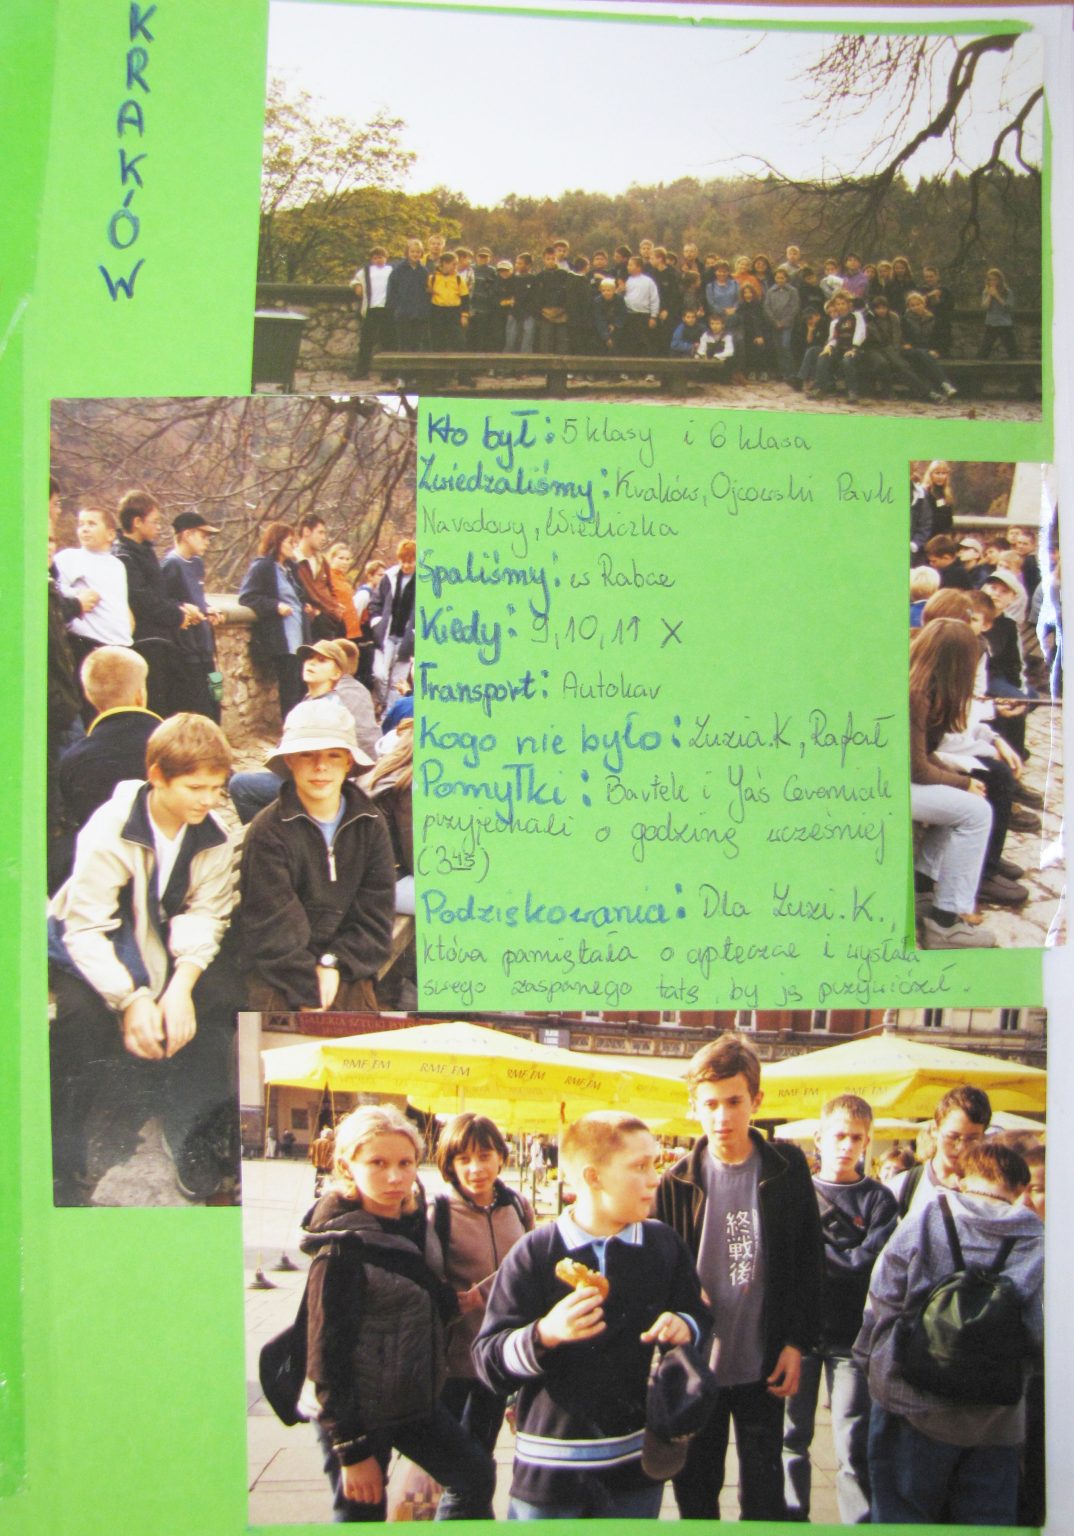 KRAKÓW
Kto był: 5 klasy i 6 klasa
Zwiedzaliśmy: Kraków, Ojcowski Park
Narodowy, Wieliczka
Spaliśmy: w Rabce
Kiedy: 9, 10, 11 X
Transport: Autokar
Kogo nie było: Zuzia.K, Rafał
Pomyłki: Bartek i Jaś
przyjechali o godzinę wcześniej
(3 45)
Podziękowania: Dla Zuzi.K.,
która pamiętała o apteczce i wysłała
swego zaspanego tatę, by ją przywiózł.
RMF FM RMF FM RMF FM RMF FM RMF FM RMF FM
終
戦
後